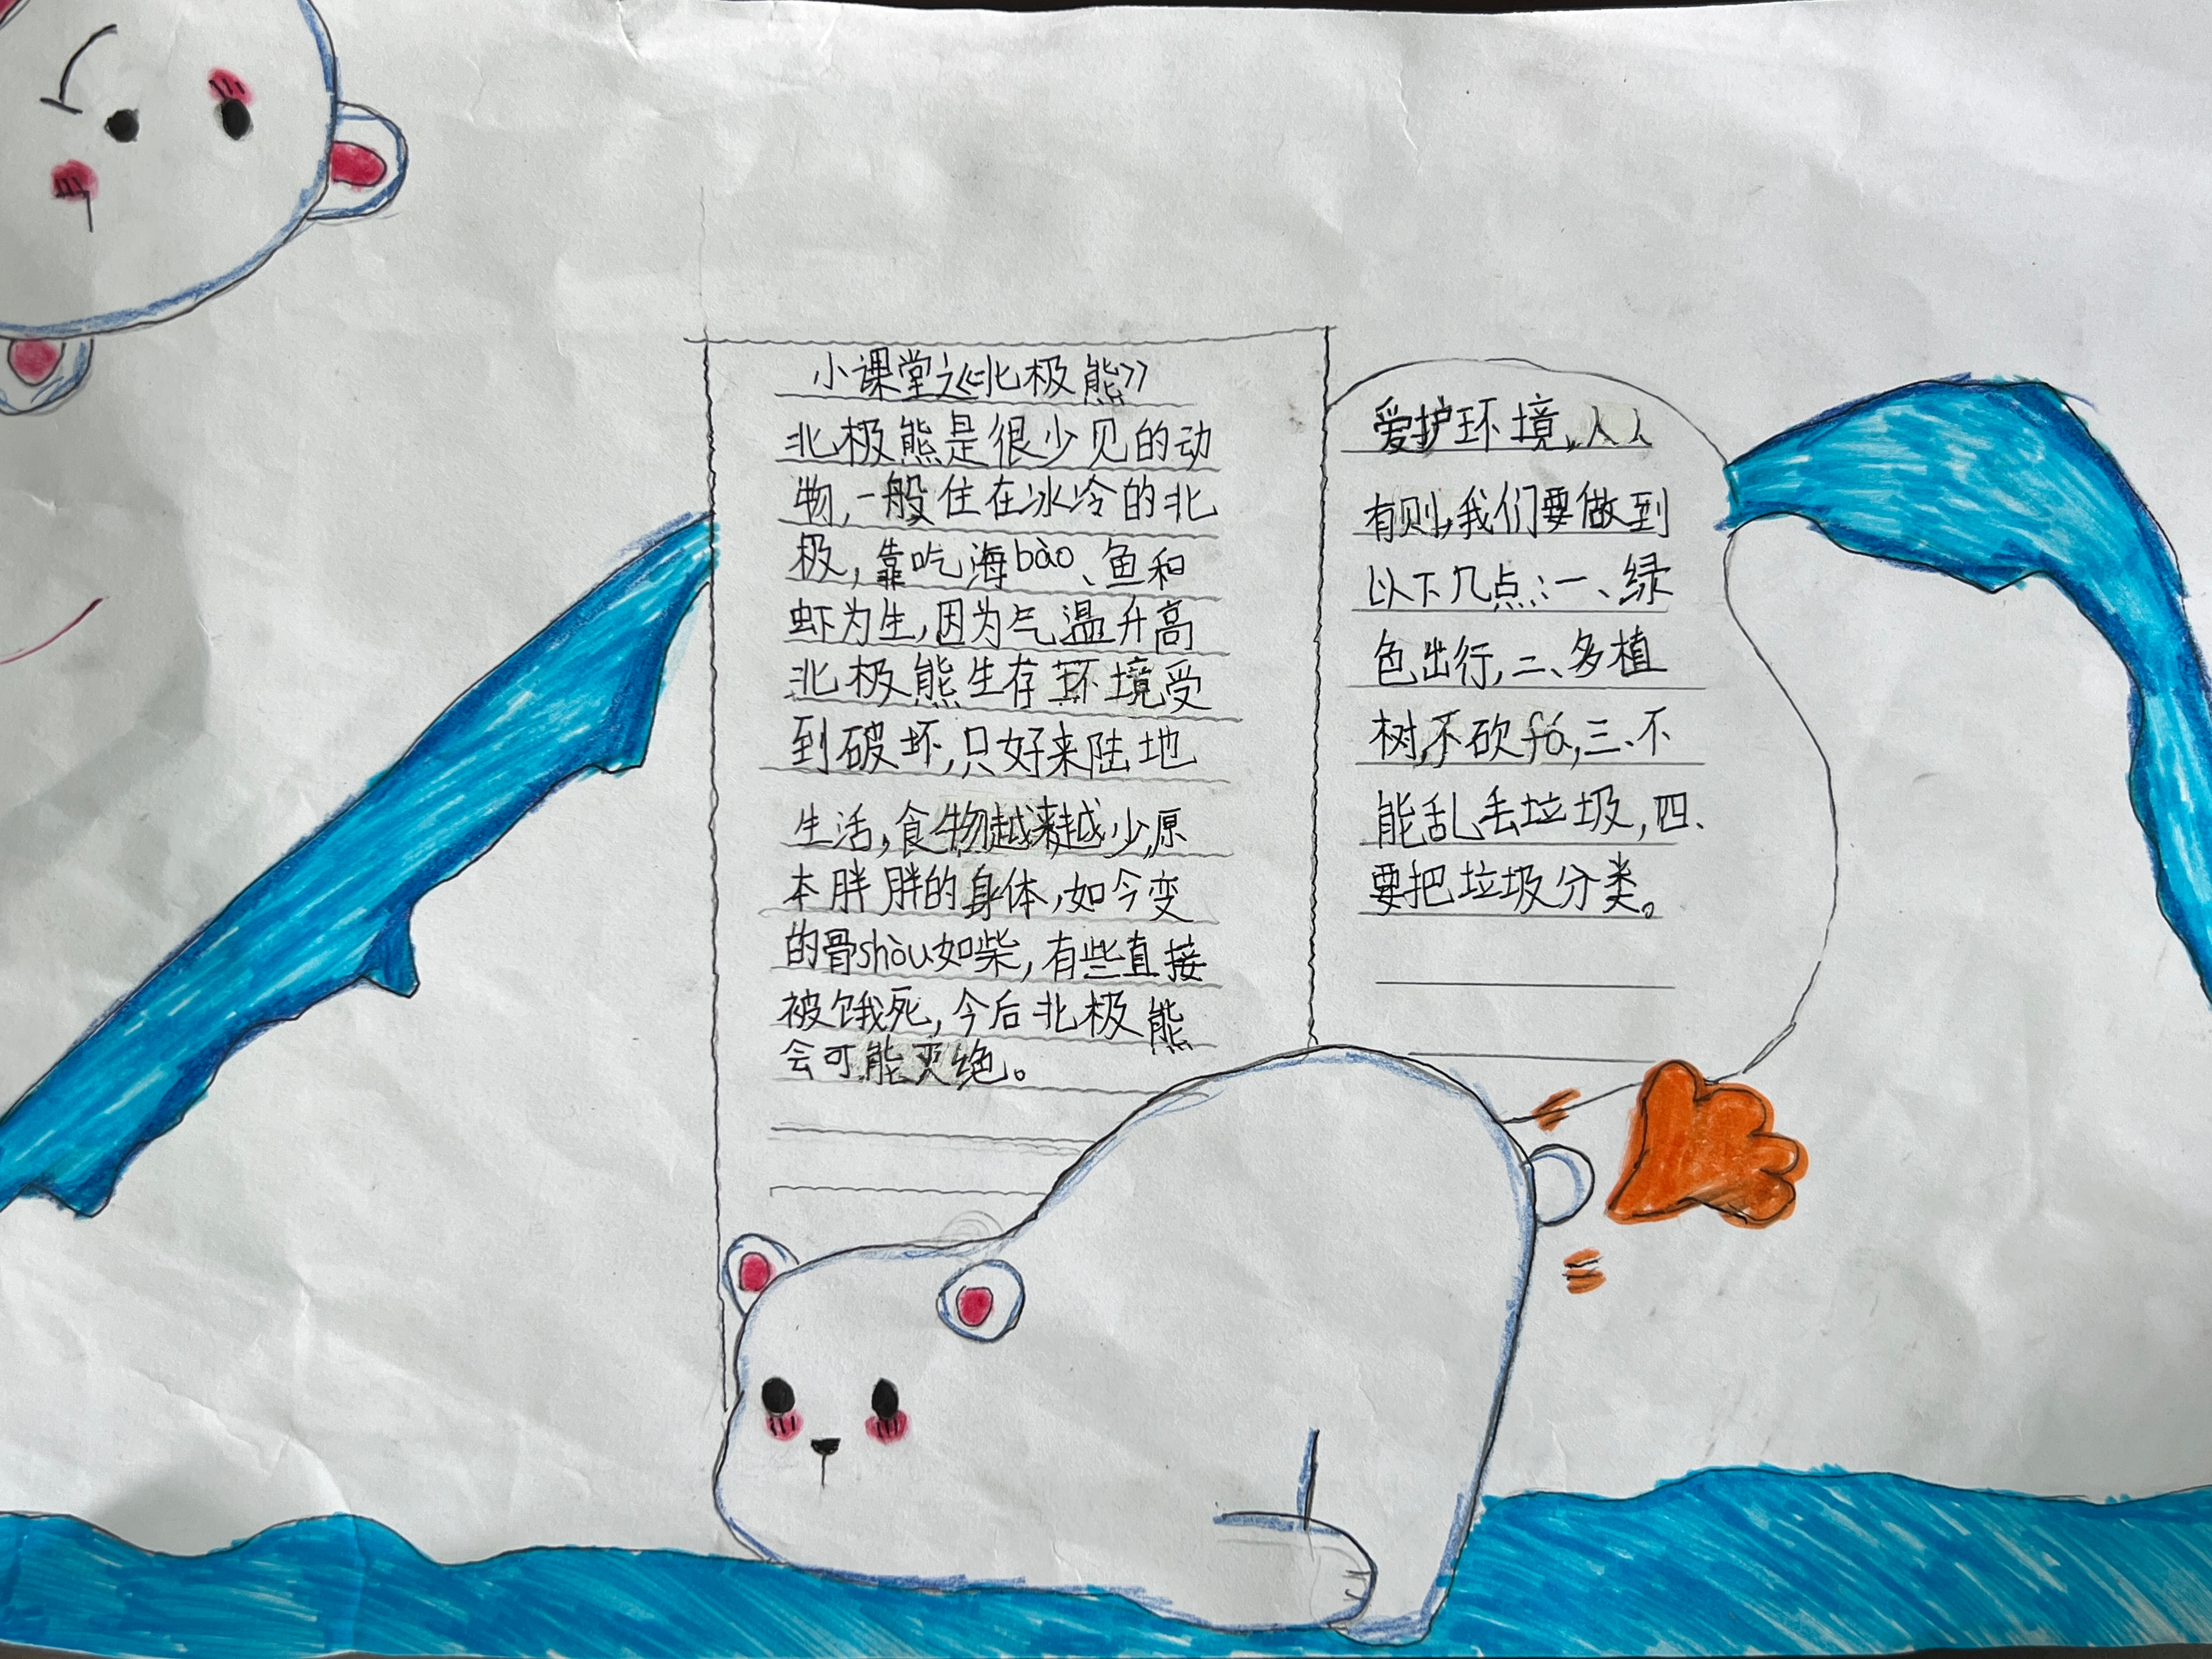 小课堂之《北极熊》
北极熊是很少见的动
物,一般住在冰冷的北
极,靠吃海bào、鱼和
虾为生,因为气温升高
北极熊生存环境受
到破坏,只好来陆地
生活,食物越来越少,原
本胖胖的身体,如今变
的骨shòu如柴,有些直接
被饿死,今后北极熊
会可能灭绝。
爱护环境,人人
有则,我们要做到
以下几点:一、绿
色出行,二、多植
树,不砍fá,三、不
能乱丢垃圾,四、
要把垃圾分类。